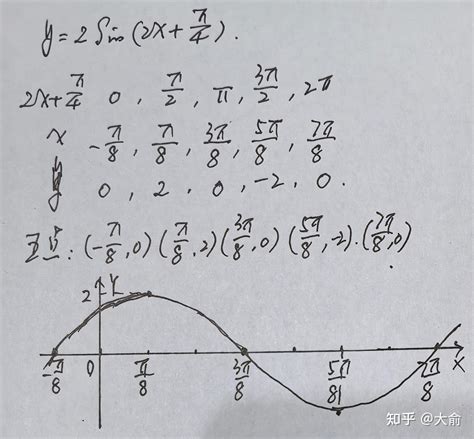 y=2Sin(2x+π/4).
2x+π/4 0, π/2, π, 3π/2, 2π
x -π/8, π/8, 3π/8, 5π/8, 7π/8
y 0, 2, 0, -2, 0.
五点:(-π/8,0)(π/8,2)(3π/8,0)(5π/8,-2).(7π/8,0)
2 Y
-π/8 0 π/8 3π/8 5π/8 7π/8 X
知乎 @大俞